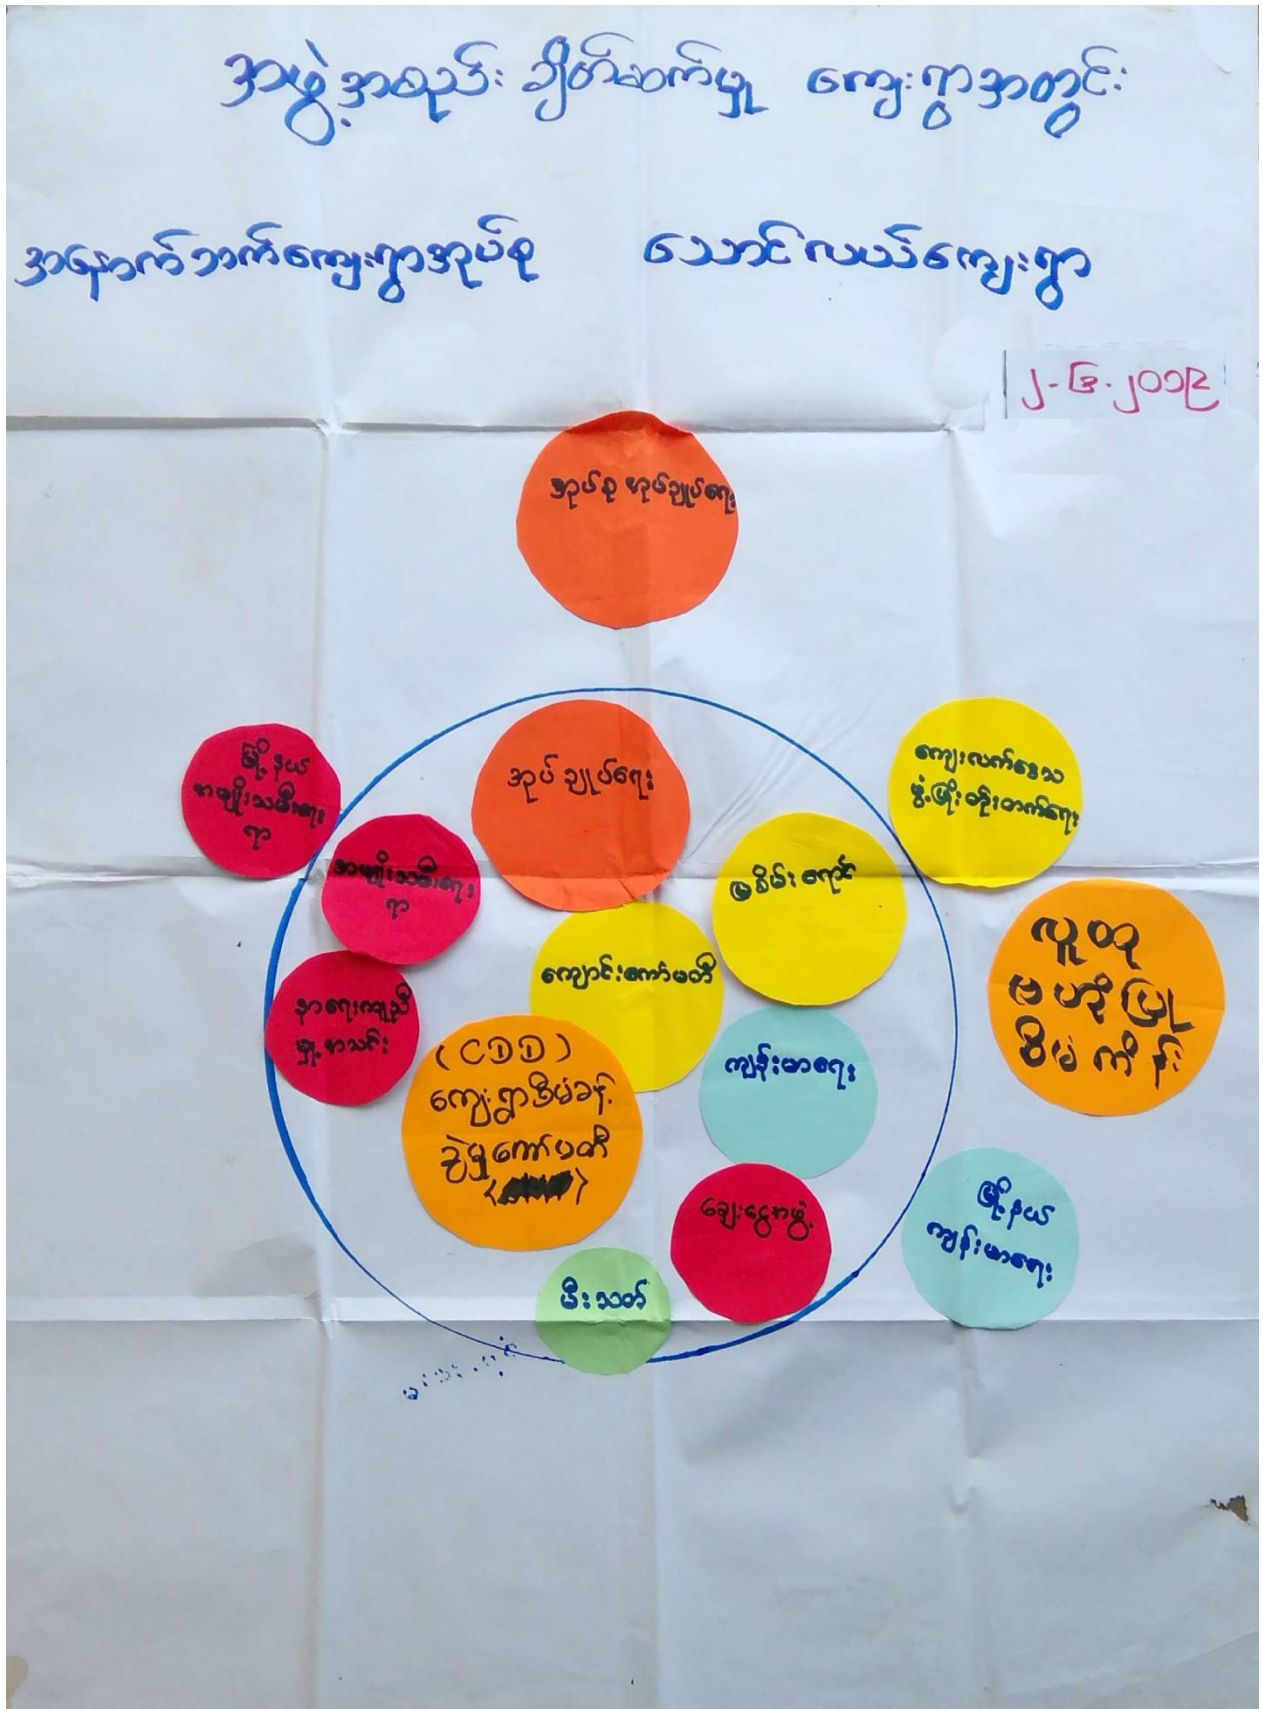 အဖွဲ့အစည်း ချိတ်ဆက်မှု ကျေးရွာအတွင်း
အနောက်ဘက်ကျေးရွာအုပ်စု သောင်လယ်ကျေးရွာ
၂-၆-၂၀၁၉
အုပ်စု အုပ်ချုပ်ရေး
မြို့နယ်
အမျိုးသမီးရေး
ရာ
အုပ်ချုပ်ရေး
ကျေးလက်ဒေသ
ဖွံ့ဖြိုးတိုးတက်ရေး
အမျိုးသမီးရေး
ရာ
မြစိမ်းရောင်
လူထု
ဗဟိုပြု
စီမံကိန်း
ကျောင်းကော်မတီ
နာရေးကူညီ
မှု့အသင်း
(CDD)
ကျေးရွာစီမံခန့်
ခွဲမှုကော်မတီ
ကျန်းမာရေး
ချေးငွေအဖွဲ့
မြို့နယ်
ကျန်းမာရေး
မီးသတ်